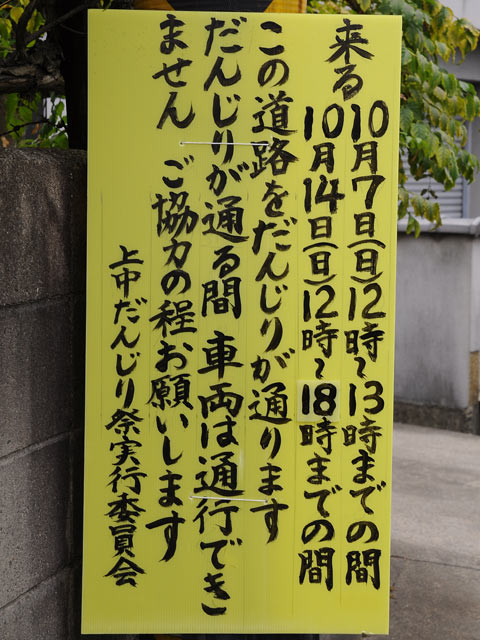 来る10月7日(日)12時～13時までの間
10月14日(日)12時～18時までの間
この道路をだんじりが通ります
だんじりが通る間 車両は通行でき
ません ご協力の程お願いします
上中だんじり祭実行委員会